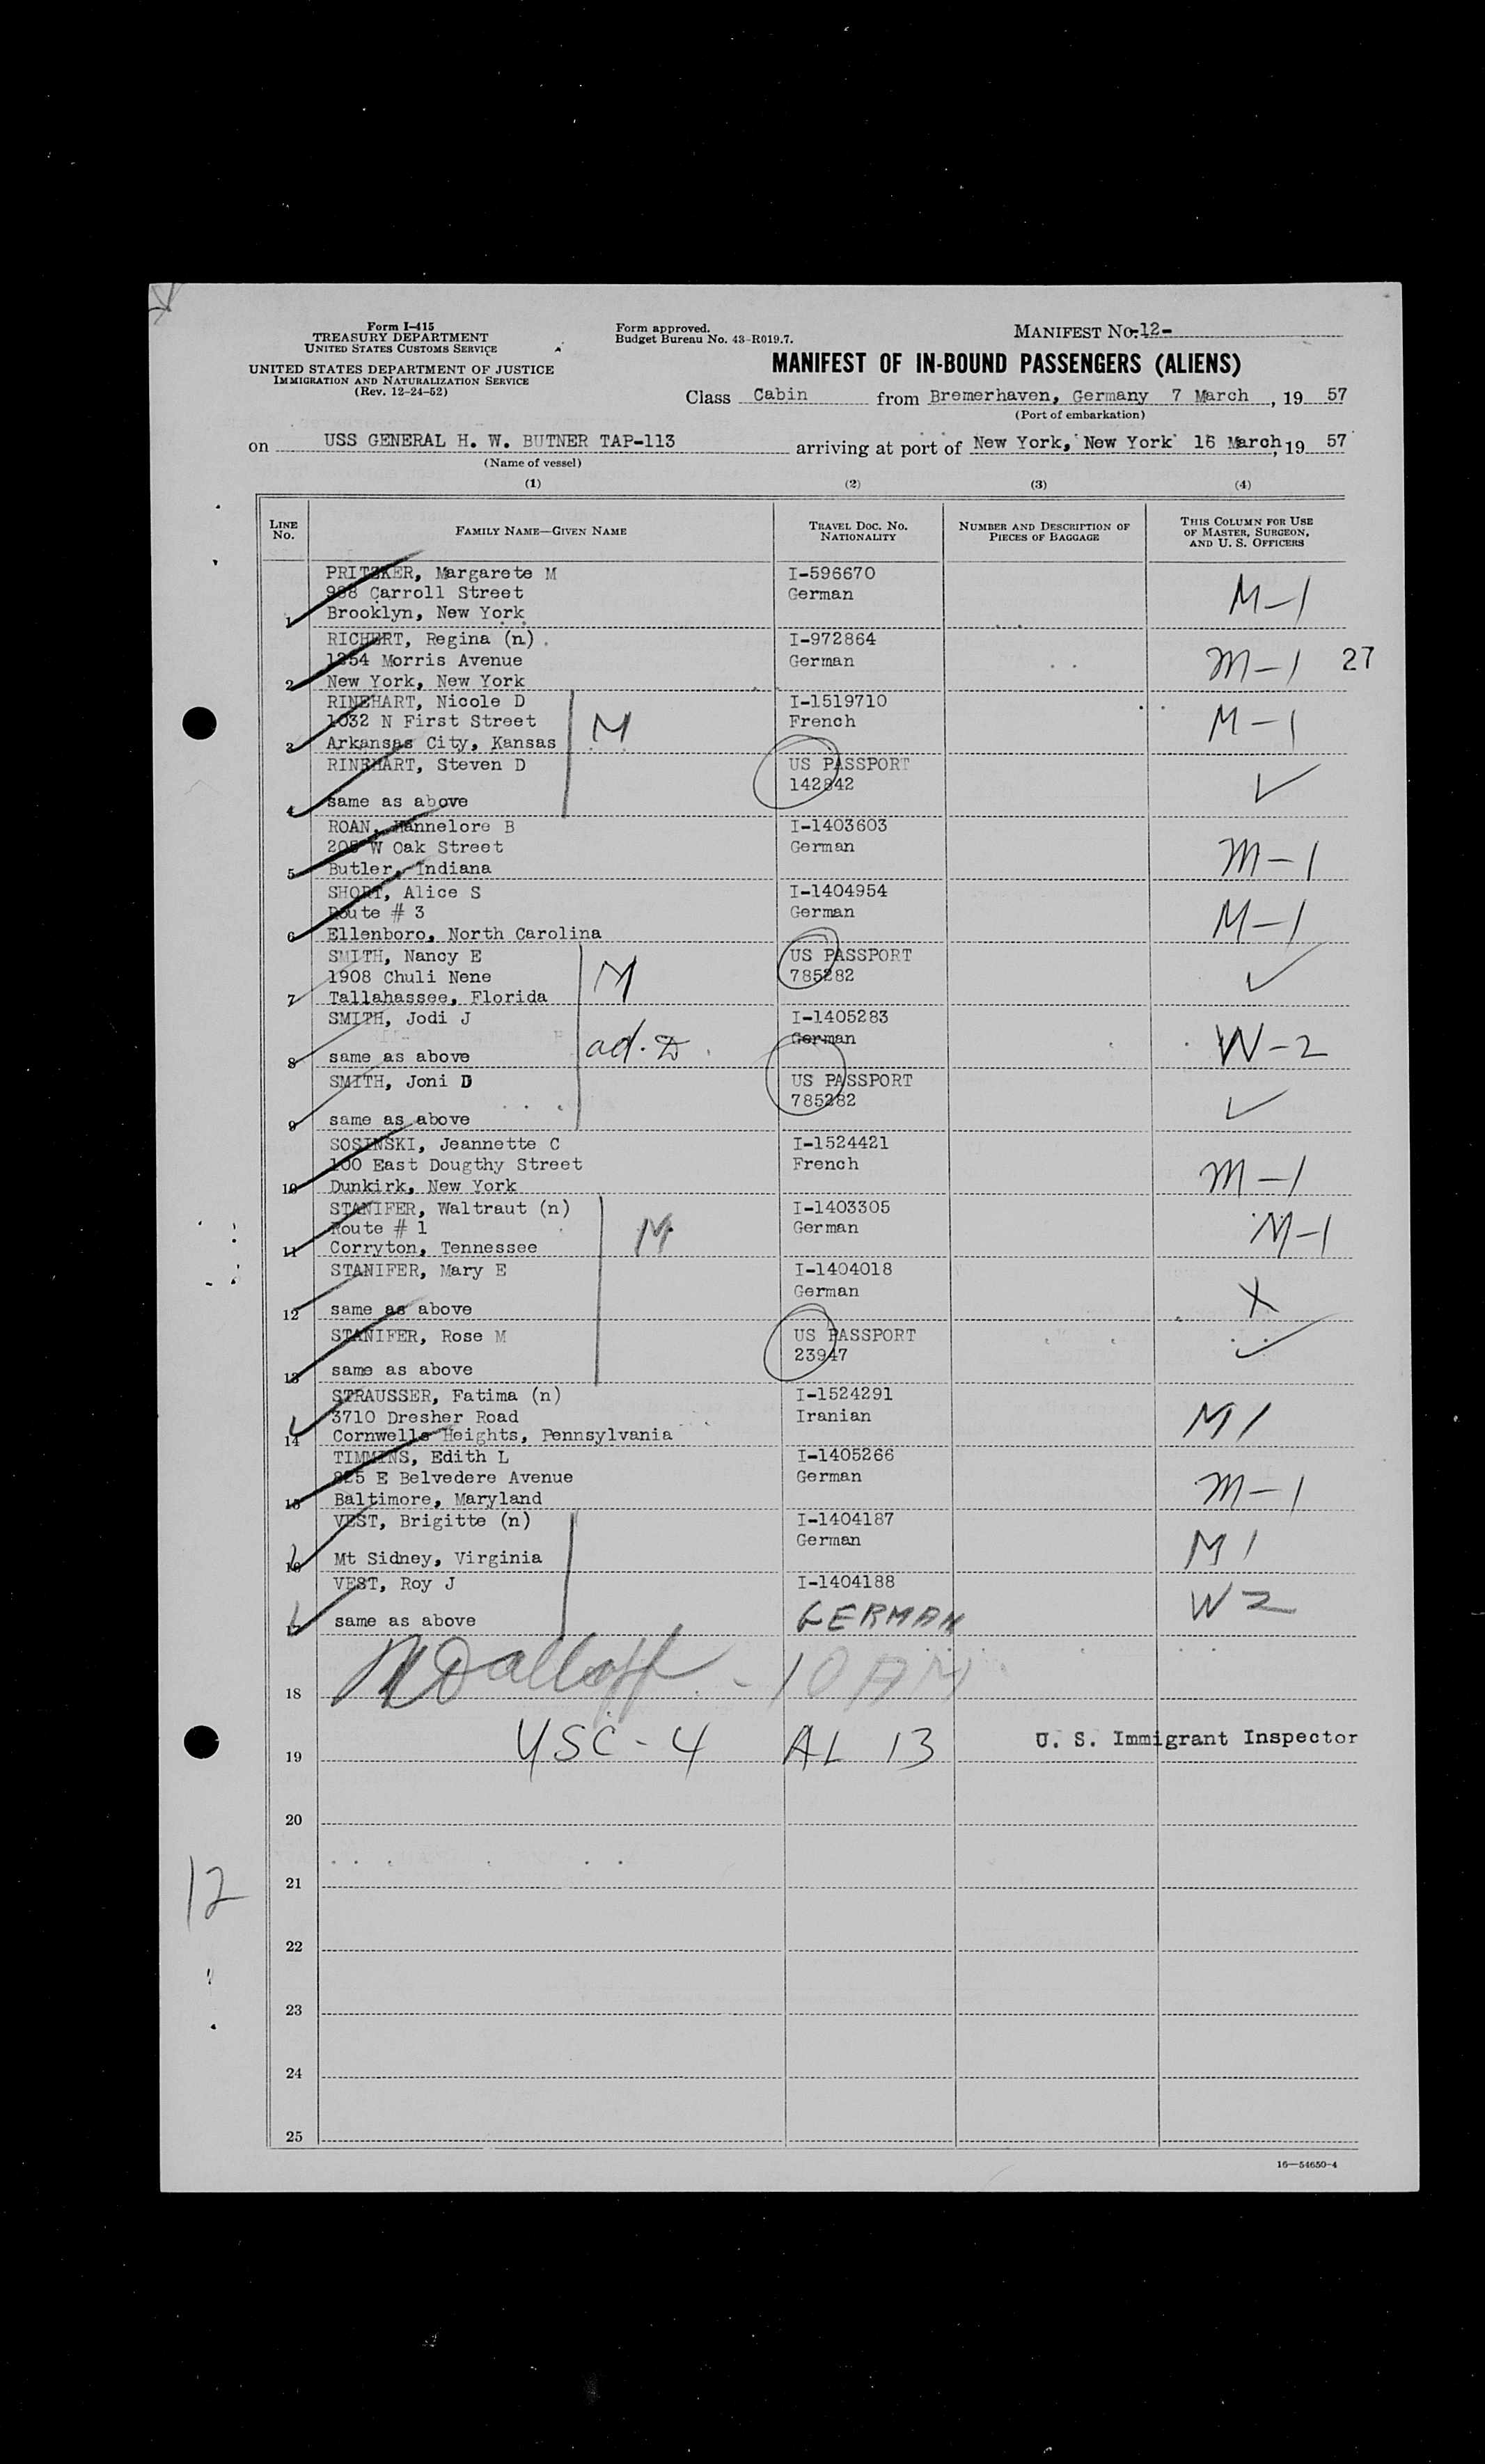 Form I-415
TREASURY DEPARTMENT
UNITED STATES CUSTOMS SERVICE
UNITED STATES DEPARTMENT OF JUSTICE
IMMIGRATION AND NATURALIZATION SERVICE
(Rev. 12-24-52)
Form approved.
Budget Bureau No. 43-R019.7.
MANIFEST No. -12-
MANIFEST OF IN-BOUND PASSENGERS (ALIENS)
Class Cabin from Bremerhaven, Germany 7 March, 19 57
(Port of embarkation)
on USS GENERAL H. W. BUTNER TAP-113 arriving at port of New York, New York 16 March, 19 57
(Name of vessel)
(1) (2) (3) (4)
LINE No. FAMILY NAME—GIVEN NAME TRAVEL DOC. NO. NATIONALITY NUMBER AND DESCRIPTION OF PIECES OF BAGGAGE THIS COLUMN FOR USE OF MASTER, SURGEON, AND U. S. OFFICERS
PRITZKER, Margarete M I-596670
988 Carroll Street German M-1
1 Brooklyn, New York
RICHERT, Regina (n) I-972864
1254 Morris Avenue German M-1 27
2 New York, New York
RINEHART, Nicole D I-1519710
1032 N First Street M French M-1
3 Arkansas City, Kansas
RINEHART, Steven D US PASSPORT
142842 ✓
4 same as above
ROAN, Hannelore B I-1403603
205 W Oak Street German M-1
5 Butler, Indiana
SHORT, Alice S I-1404954
Route # 3 German M-1
6 Ellenboro, North Carolina
SMITH, Nancy E US PASSPORT
1908 Chuli Nene M 785282 ✓
7 Tallahassee, Florida
SMITH, Jodi J I-1405283
ad. German W-2
8 same as above
SMITH, Joni D US PASSPORT
785282 ✓
9 same as above
SOSINSKI, Jeannette C I-1524421
100 East Dougthy Street French M-1
10 Dunkirk, New York
STANIFER, Waltraut (n) I-1403305
Route # 1 M German M-1
11 Corryton, Tennessee
STANIFER, Mary E I-1404018
German X
12 same as above
STANIFER, Rose M US PASSPORT
23947 ✓
13 same as above
STRAUSSER, Fatima (n) I-1524291
3710 Dresher Road Iranian M1
14 Cornwells Heights, Pennsylvania
TIMMINS, Edith L I-1405266
825 E Belvedere Avenue German M-1
15 Baltimore, Maryland
VEST, Brigitte (n) I-1404187
German M1
16 Mt Sidney, Virginia
VEST, Roy J I-1404188
17 same as above GERMAN W2
18 - 10 AM
19 USC-4 AL 13 U. S. Immigrant Inspector
20
21
12
22
23
24
25
16—54650-4